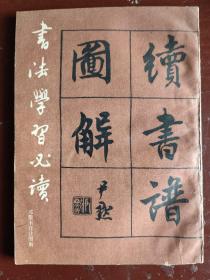 續書譜
圖解
尹默
書法學習必讀